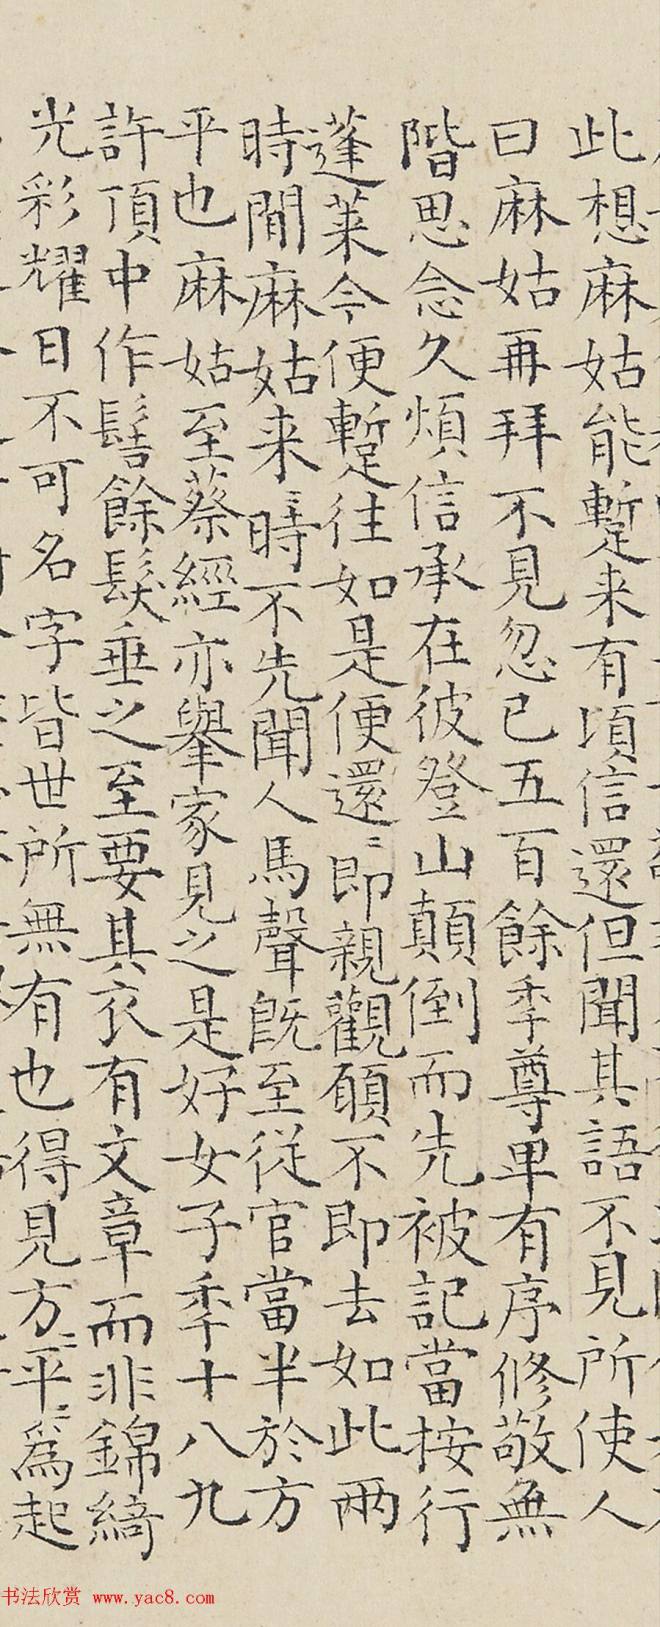 此想麻姑能蹔来有頃信還但聞其語不見所使人
曰麻姑再拜不見忽已五百餘秊尊卑有序修敬無
階思念久煩信承在彼登山顛倒而先被記當桉行
蓬莱今便蹔往如是便還〻即親觀願不即去如此兩
時間麻姑来〻時不先聞人馬聲旣至從官當半於方
平也麻姑至蔡經亦舉家見之是好女子秊十八九
許頂中作髻餘髮垂之至要其衣有文章而非錦綺
光彩耀日不可名字皆世所無有也得見方〻平〻爲起
书法欣赏 www.yac8.com